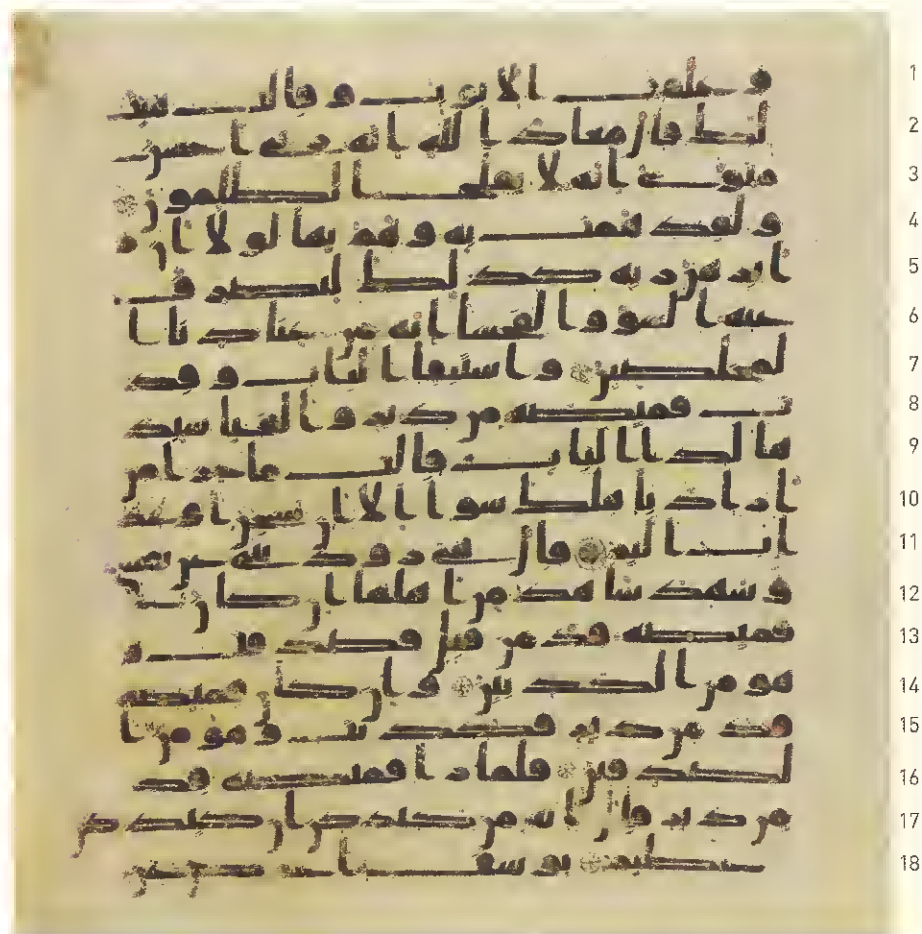 و غلقت الابوب و قالت هيت 1
لك قال معاذ الله انه ربي احسن 2
مثوي انه لا يفلح الظلمون 3
و لقد همت به و هم بها لولا ان ر 4
ا برهن ربه كذلك لنصرف 5
عنه السو و الفحشا انه من عبادنا ا 6
لمخلصين و استبقا الباب و قد 7
ت قميصه من دبر و الفيا سيد 8
ها لدا الباب قالت ما جزا من 9
اراد باهلك سوا الا ان يسجن او عذ 10
اب اليم قال هي رودتني عن نفسي 11
و شهد شاهد من اهلها ان كان 12
قميصه قد من قبل فصدقت و 13
هو من الكذبين و ان كان قميصه 14
قد من دبر فكذبت و هو من ا 15
لصدقين فلما را قميصه قد 16
من دبر قال انه من كيدكن ان كيدكن 17
عظيم يوسف اعرض عن 18